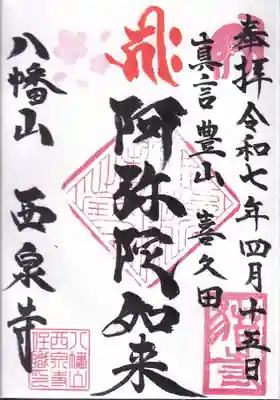 奉拝 令和七年四月十五日
真言豊山 喜久田
阿弥陀如来
八幡山 西泉寺
八幡山
西泉寺
住職之印